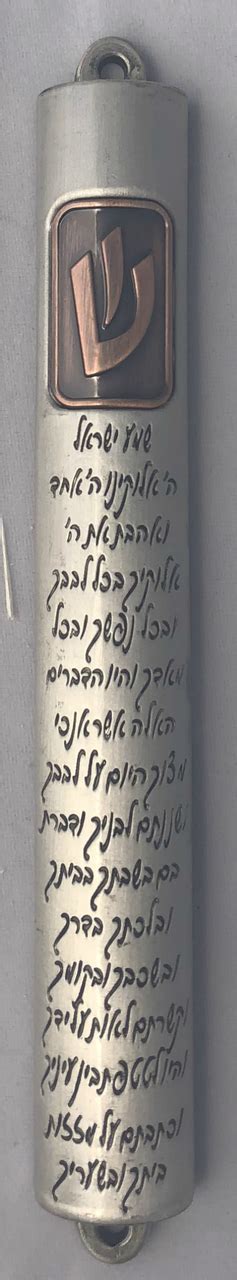 ש
שמע ישראל
ה' אלוקינו ה' אחד
ואהבת את ה'
אלוקיך בכל לבבך
ובכל נפשך ובכל
מאדך והיו הדברים
האלה אשר אנכי
מצוך היום על לבבך
ושננתם לבניך ודברת
בם בשבתך בביתך
ובלכתך בדרך
ובשכבך ובקומך
וקשרתם לאות על ידך
והיו לטטפת בין עיניך
וכתבתם על מזזות
ביתך ובשעריך